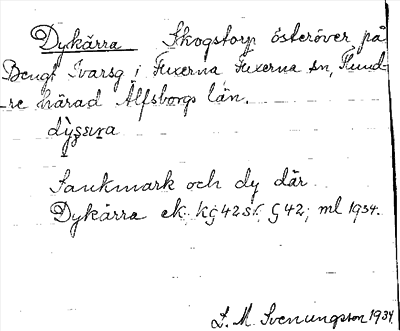 Dykärra Skogstorp österöver på
Bengt Ivarsg i Fuxerna Fuxerna sn, Flund-
re härad Älfsborgs län.
Sankmark och dy där.
Dykärra ek kg 42 sf. g 42; ml 1934.
L. M. Svenungsson 1934.